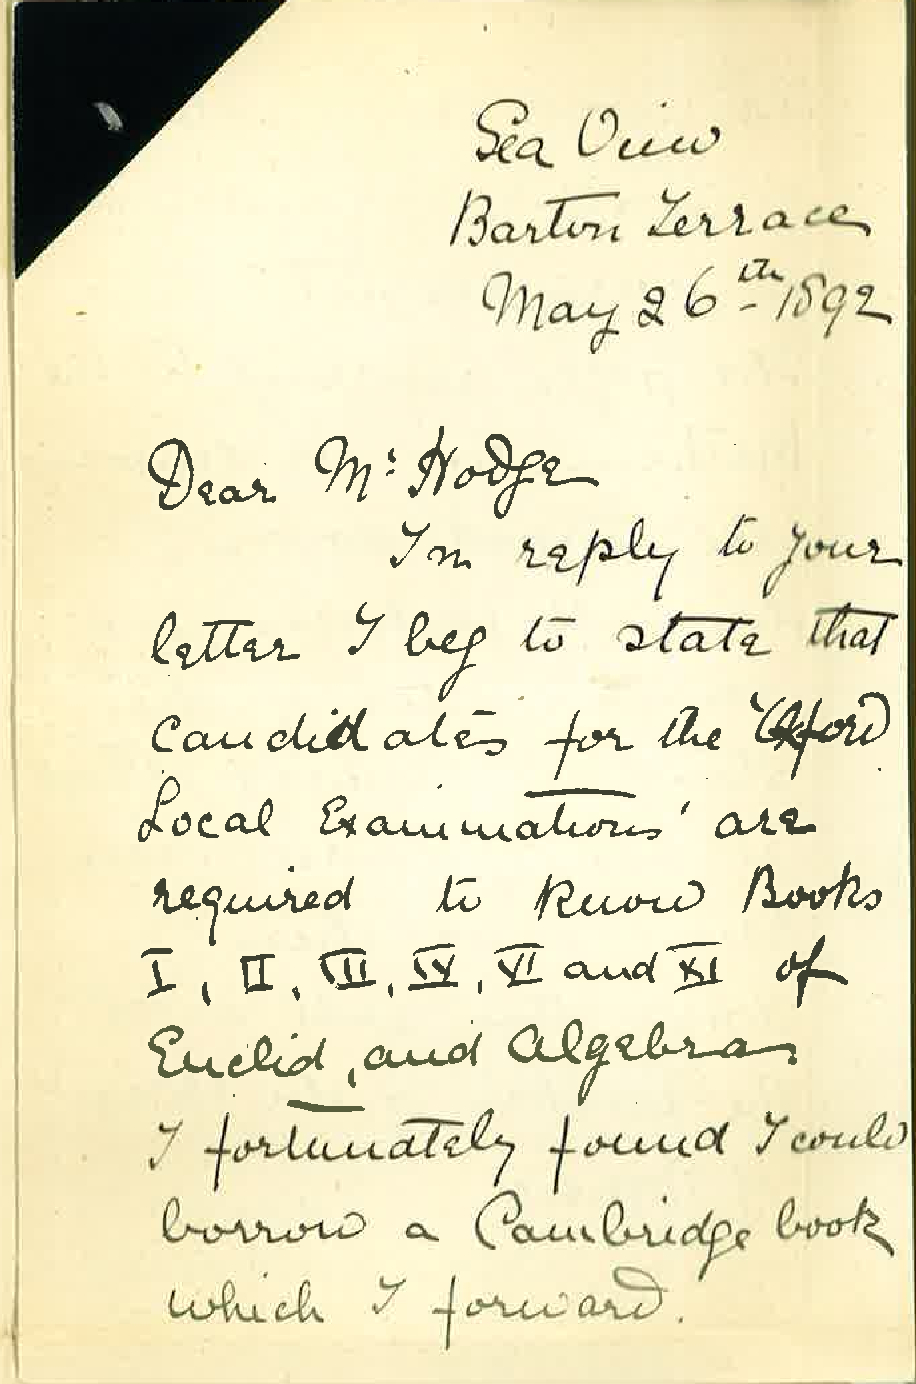 Sea View
Barton Terrace
May 26th 1892
Dear Mr Hodge
In reply to your
letter I beg to state that
candidates for the 'Oxford
Local Examinations' are
required to know Books
I, II, III, IV, VI and XI of
Euclid, and Algebra
I fortunately found I could
borrow a Cambridge book
which I forward.